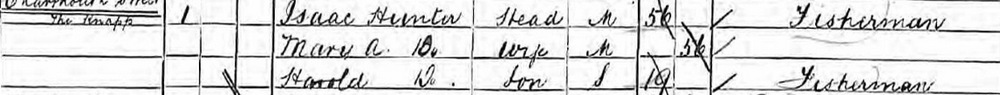 The Knapp 1 Isaac Hunter Head M 56 Fisherman
Mary A. Do. Wife M 56
Harold Do. Son S 19 Fisherman